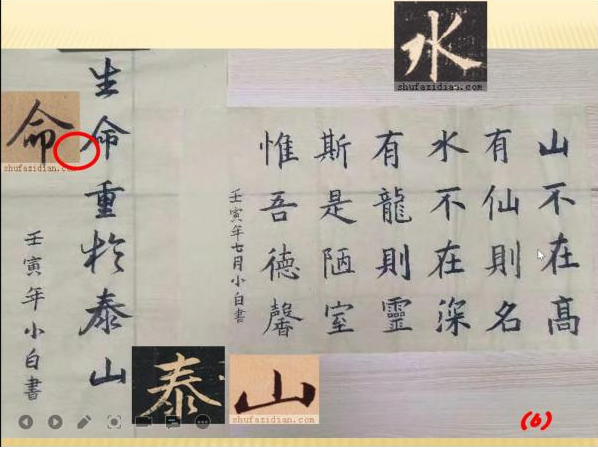 水
shufazidian.com
山不在高
有仙則名
水不在深
有龍則靈
斯是陋室
惟吾德馨
壬寅年七月小白書
生命重於泰山
壬寅年小白書
命
shufazidian.com
泰
山
shufazidian.com
(6)